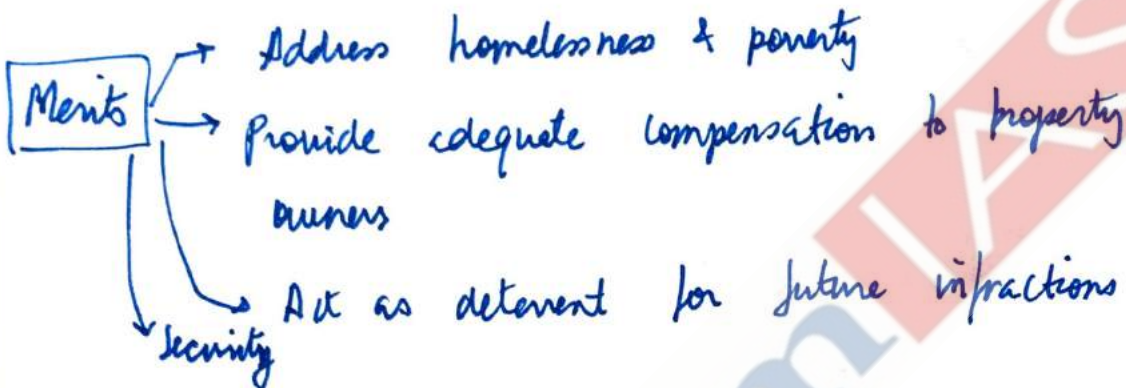 Address homelessness & poverty
Merits
Provide adequate compensation to property
owners
Act as deterrent for future infractions
Security